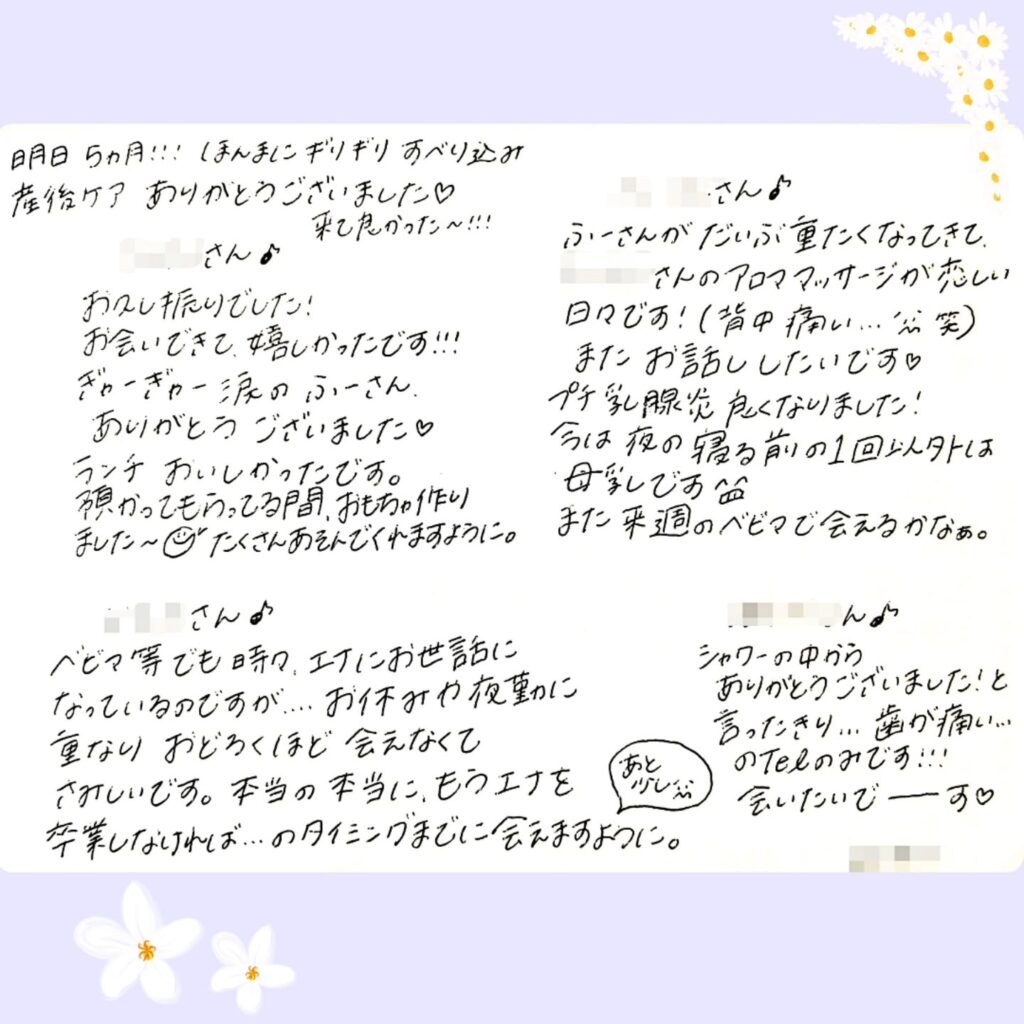 明日 5ヵ月!!! ほんまにギリギリ すべり込み
産後ケア ありがとうございました♡
来て良かった〜!!!
さん♪
お久し振りでした!
お会いできて、嬉しかったです!!!
ぎゃーぎゃー 涙の ふーさん、
ありがとう ございました♡
ランチ おいしかったです。
預かってもらってる間、おもちゃ作り
ました〜 たくさんあそんでくれますように。
さん♪
ふーさんが だいぶ重たくなってきて、
さんのアロママッサージが恋しい
日々です!(背中 痛い… 笑)
また お話し したいです♡
プチ乳腺炎 良くなりました!
今は 夜の 寝る前の1回以外は
母乳です^^
また 来週のベビマで会えるかなぁ。
さん♪
ベビマ等でも 時々、エナにお世話に
なっているのですが…. お休みや夜勤に
重なり おどろくほど 会えなくて
さみしいです。本当の本当に、もうエナを
卒業しなければ…のタイミングまでに会えますように。
あと
少し
ん♪
シャワーの中から
ありがとうございました!と
言ったきり… 歯が痛い…
のTelのみです!!!
会いたいで――す♡